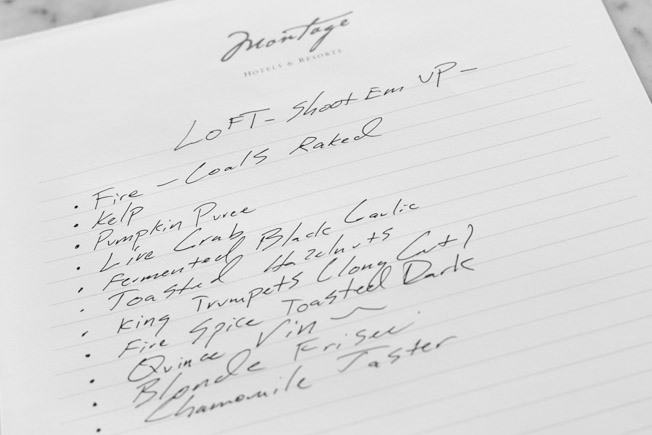 Montage
HOTELS & RESORTS
LOFT - Shoot Em UP -
• Fire - Coals Raked
• Kelp
• Pumpkin Puree
• Live Crab
• Fermented Black Garlic
• Toasted Hazelnuts
• King Trumpets (Long Cut)
• Fire Spice Toasted Dark
• Quince Vin
• Blonde Frisee
• Chamomile Taster